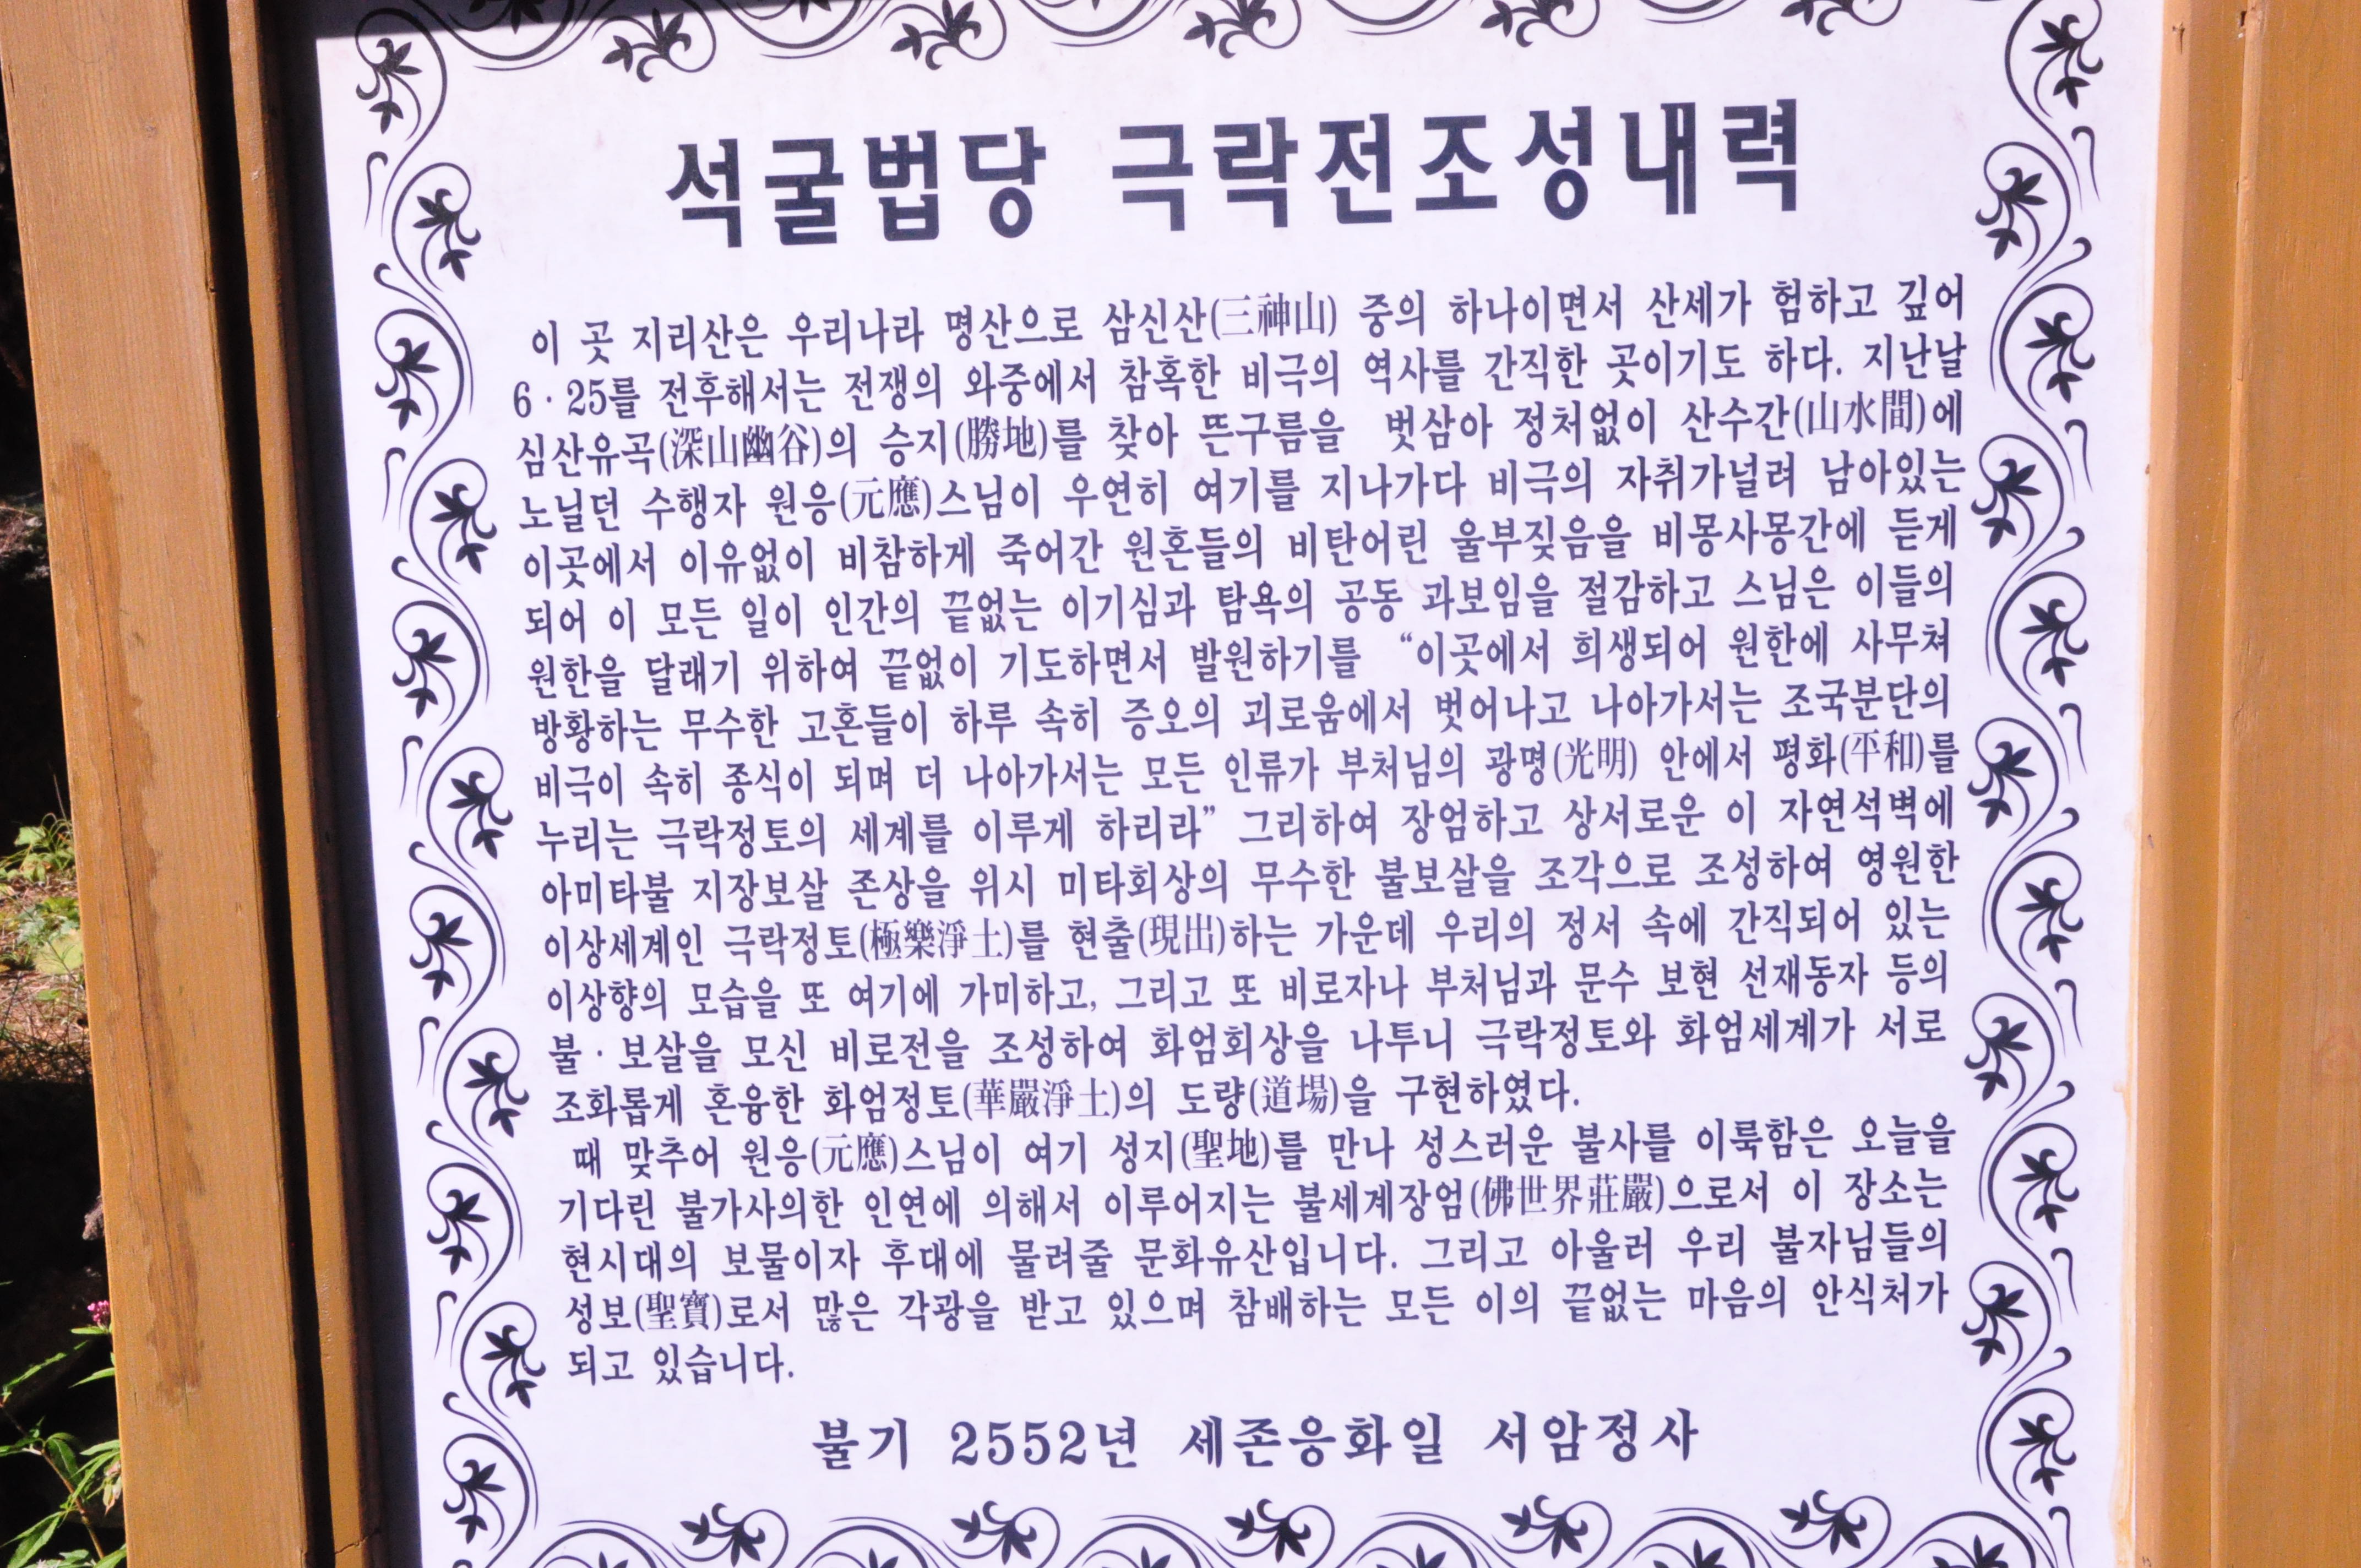 석굴법당 극락전조성내력
이 곳 지리산은 우리나라 명산으로 삼신산(三神山) 중의 하나이면서 산세가 험하고 깊어
6·25를 전후해서는 전쟁의 와중에서 참혹한 비극의 역사를 간직한 곳이기도 하다. 지난날
심산유곡(深山幽谷)의 승지(勝地)를 찾아 뜬구름을 벗삼아 정처없이 산수간(山水間)에
노닐던 수행자 원응(元應)스님이 우연히 여기를 지나가다 비극의 자취가널려 남아있는
이곳에서 이유없이 비참하게 죽어간 원혼들의 비탄어린 울부짖음을 비몽사몽간에 듣게
되어 이 모든 일이 인간의 끝없는 이기심과 탐욕의 공동 과보임을 절감하고 스님은 이들의
원한을 달래기 위하여 끝없이 기도하면서 발원하기를 “이곳에서 희생되어 원한에 사무쳐
방황하는 무수한 고혼들이 하루 속히 증오의 괴로움에서 벗어나고 나아가서는 조국분단의
비극이 속히 종식이 되며 더 나아가서는 모든 인류가 부처님의 광명(光明) 안에서 평화(平和)를
누리는 극락정토의 세계를 이루게 하리라” 그리하여 장엄하고 상서로운 이 자연석벽에
아미타불 지장보살 존상을 위시 미타회상의 무수한 불보살을 조각으로 조성하여 영원한
이상세계인 극락정토(極樂淨土)를 현출(現出)하는 가운데 우리의 정서 속에 간직되어 있는
이상향의 모습을 또 여기에 가미하고, 그리고 또 비로자나 부처님과 문수 보현 선재동자 등의
불·보살을 모신 비로전을 조성하여 화엄회상을 나투니 극락정토와 화엄세계가 서로
조화롭게 혼융한 화엄정토(華嚴淨土)의 도량(道場)을 구현하였다.
때 맞추어 원응(元應)스님이 여기 성지(聖地)를 만나 성스러운 불사를 이룩함은 오늘을
기다린 불가사의한 인연에 의해서 이루어지는 불세계장엄(佛世界莊嚴)으로서 이 장소는
현시대의 보물이자 후대에 물려줄 문화유산입니다. 그리고 아울러 우리 불자님들의
성보(聖寶)로서 많은 각광을 받고 있으며 참배하는 모든 이의 끝없는 마음의 안식처가
되고 있습니다.
불기 2552년 세존응화일 서암정사